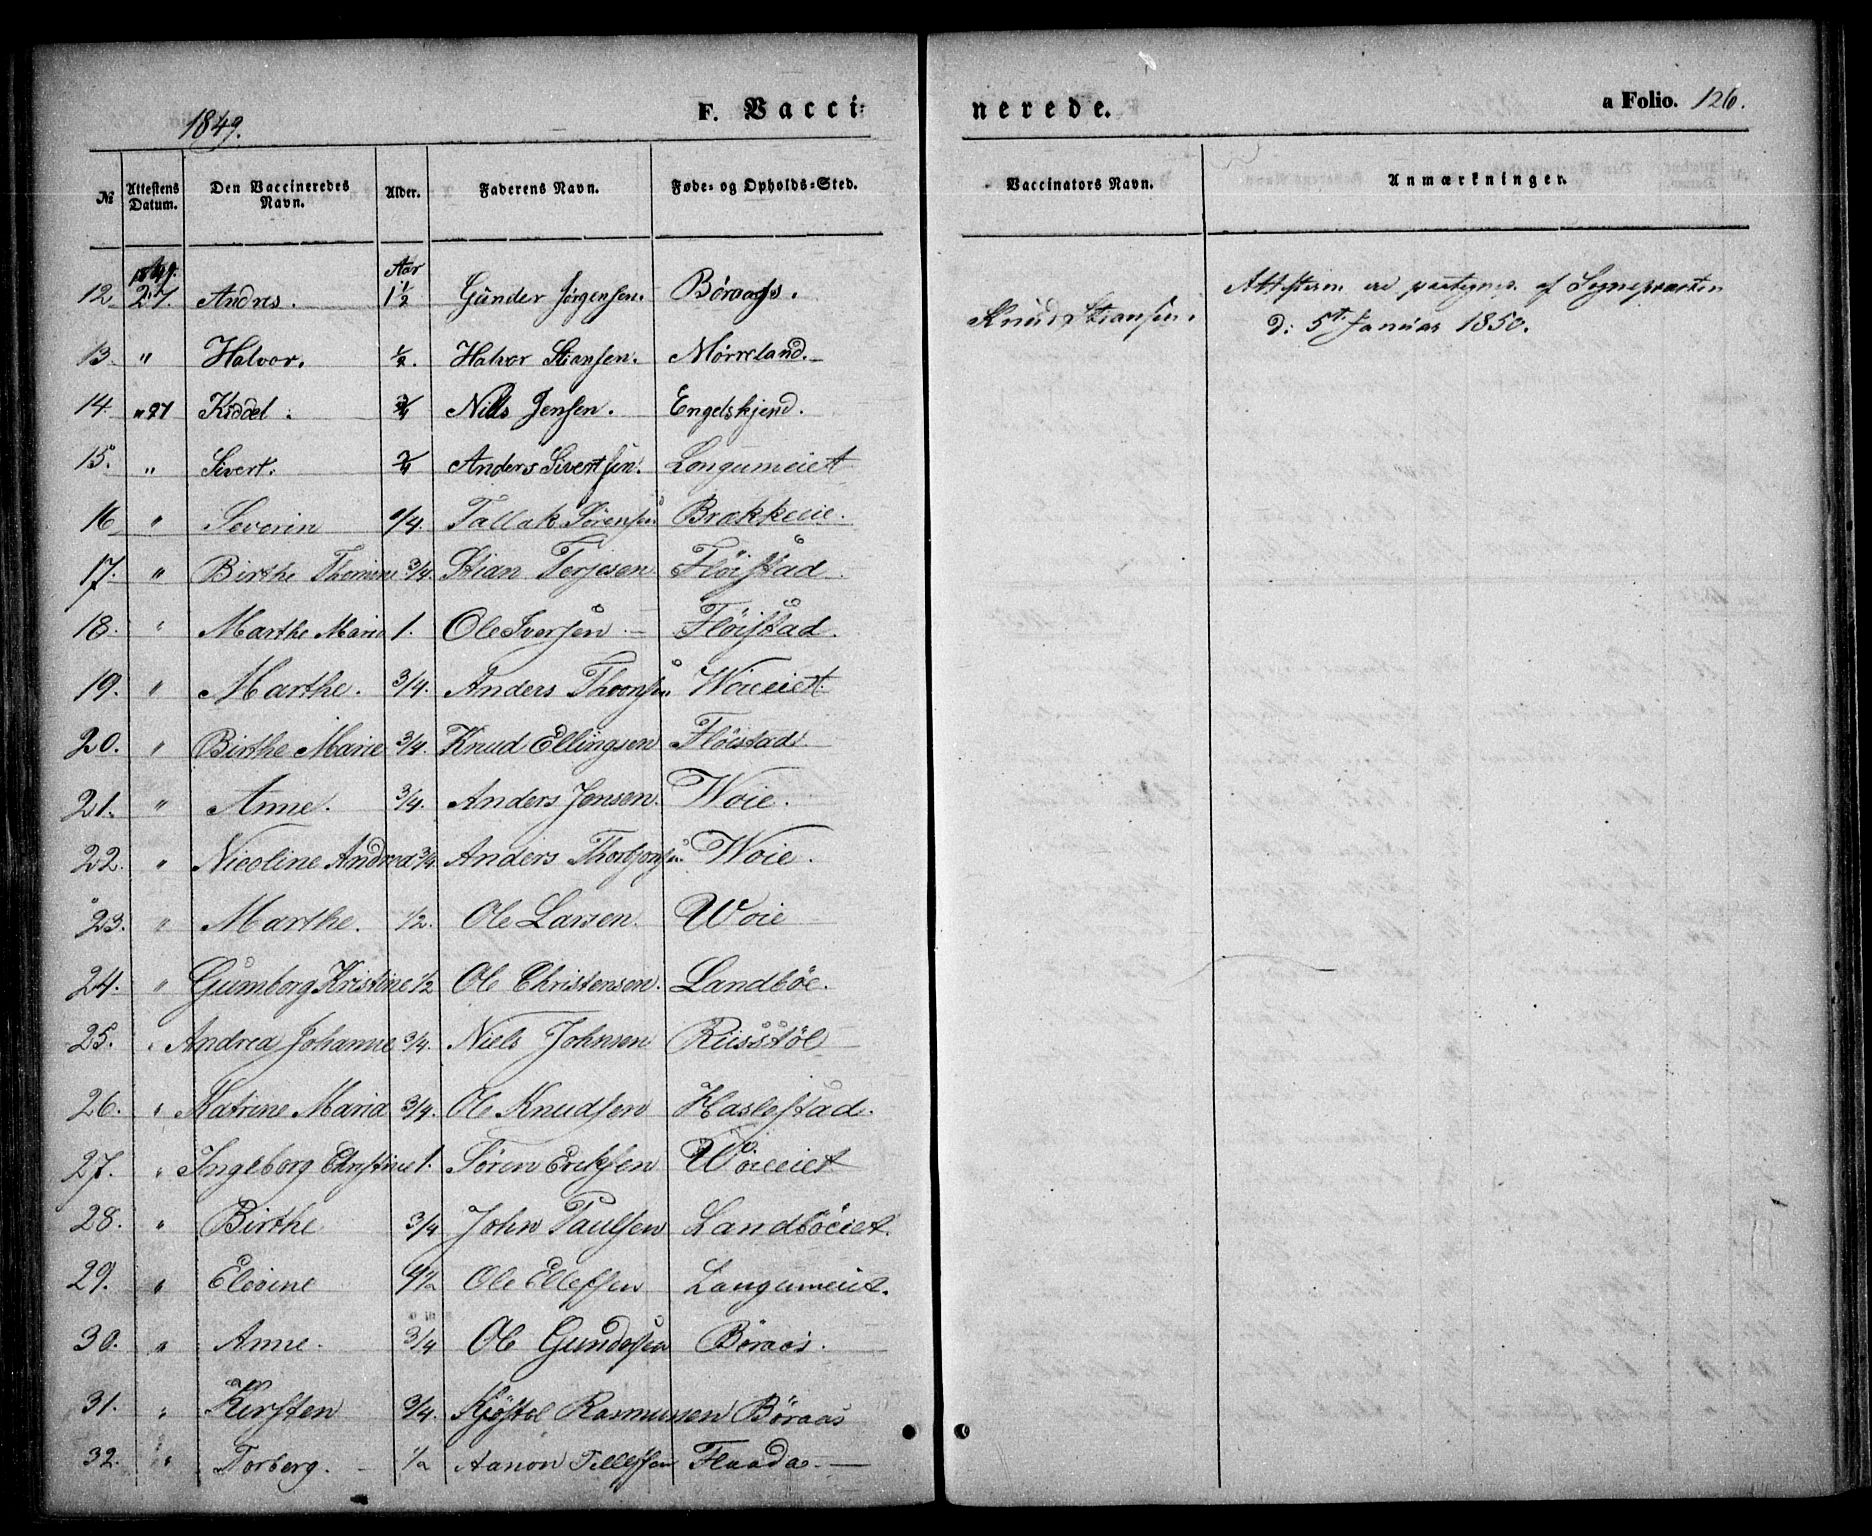 1849. F. Vacci: nerede. a Folio. 126.
№ Attestens Datum. Den Vaccineredes Navn. Alder. Faderens Navn. Føde- og Opholds-Sted. Vaccinators Navn. Anmærkninger.
1849. Aar
12 27 Andres. 1½ Gunder Jørgensen. Børaas. Knud Stiansen. Attesterne ere af Sognepræsten
d: 5t Januar 1850.
13. " Halvor. ½. Halvor Stiansen. Mørreland.
14. " 27 Kiddel. ¾ Niels Jensen. Engelskjend.
15. " Sivert. Anders Sivertsen. Longumeiet
16 " Severin /4. Tallak Sørensen Brækkeeie.
17. " Birthe Thomine 3/4. Stian Terjesen Fløistad.
18. " Marthe Marie 1. Ole Iversen. Fløistad.
19. " Marthe. 3/4. Anders Woieeiet.
20. " Birthe Marie 3/4. Knud Ellingsen Fløistad.
21. " Anne. 3/4. Anders Jensen. Woie.
22. " Nicoline Andrea 3/4. Anders Woie.
23. " Marthe. 1/2. Ole Larsen. Woie
24. " Gumborg Kristine 1/2 Ole Christensen. Landbøe.
25. " Andrea Johanne 3/4. Niels Johnsen Riisstøl
26. " Katrine Maria 3/4. Ole Knudsen Haslestad.
27. " Ingeborg Christine 1. Søren Ericksen Woieeiet
28. " Birthe 3/4 John Paulsen Landbøeiet.
29. " Elevine Ole Ellefsen Langumeiet.
30. " Anne. 3/4 Ole Gundersen Børaas.
31. " Kirsten 3/4. Kjøstol Rasmussen Børaas
32. " Torberg. 1/2 Aanon Tellefsen Flaada.